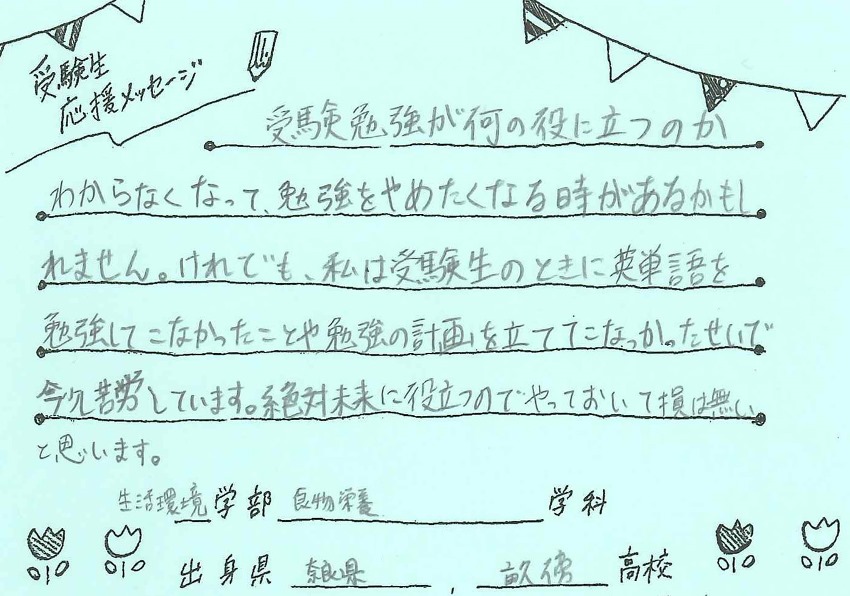 受験生
応援メッセージ
受験勉強が何の役に立つのか
わからなくなって、勉強をやめたくなる時があるかもし
れません。けれども、私は受験生のときに英単語を
勉強してこなかったことや勉強の計画を立ててこなっかったせいで
今久苦労しています。絶対未来に役立つのでやっておいて損は無い
と思います。
生活環境学部 食物栄養学科
出身県 奈良県, 畝傍高校